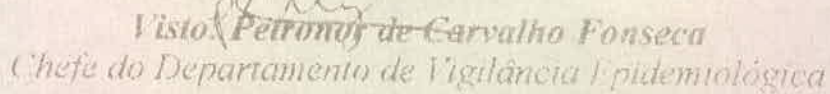 Visto: Petronor de Carvalho Fonseca
Chefe do Departamento de Vigilância Epidemiológica